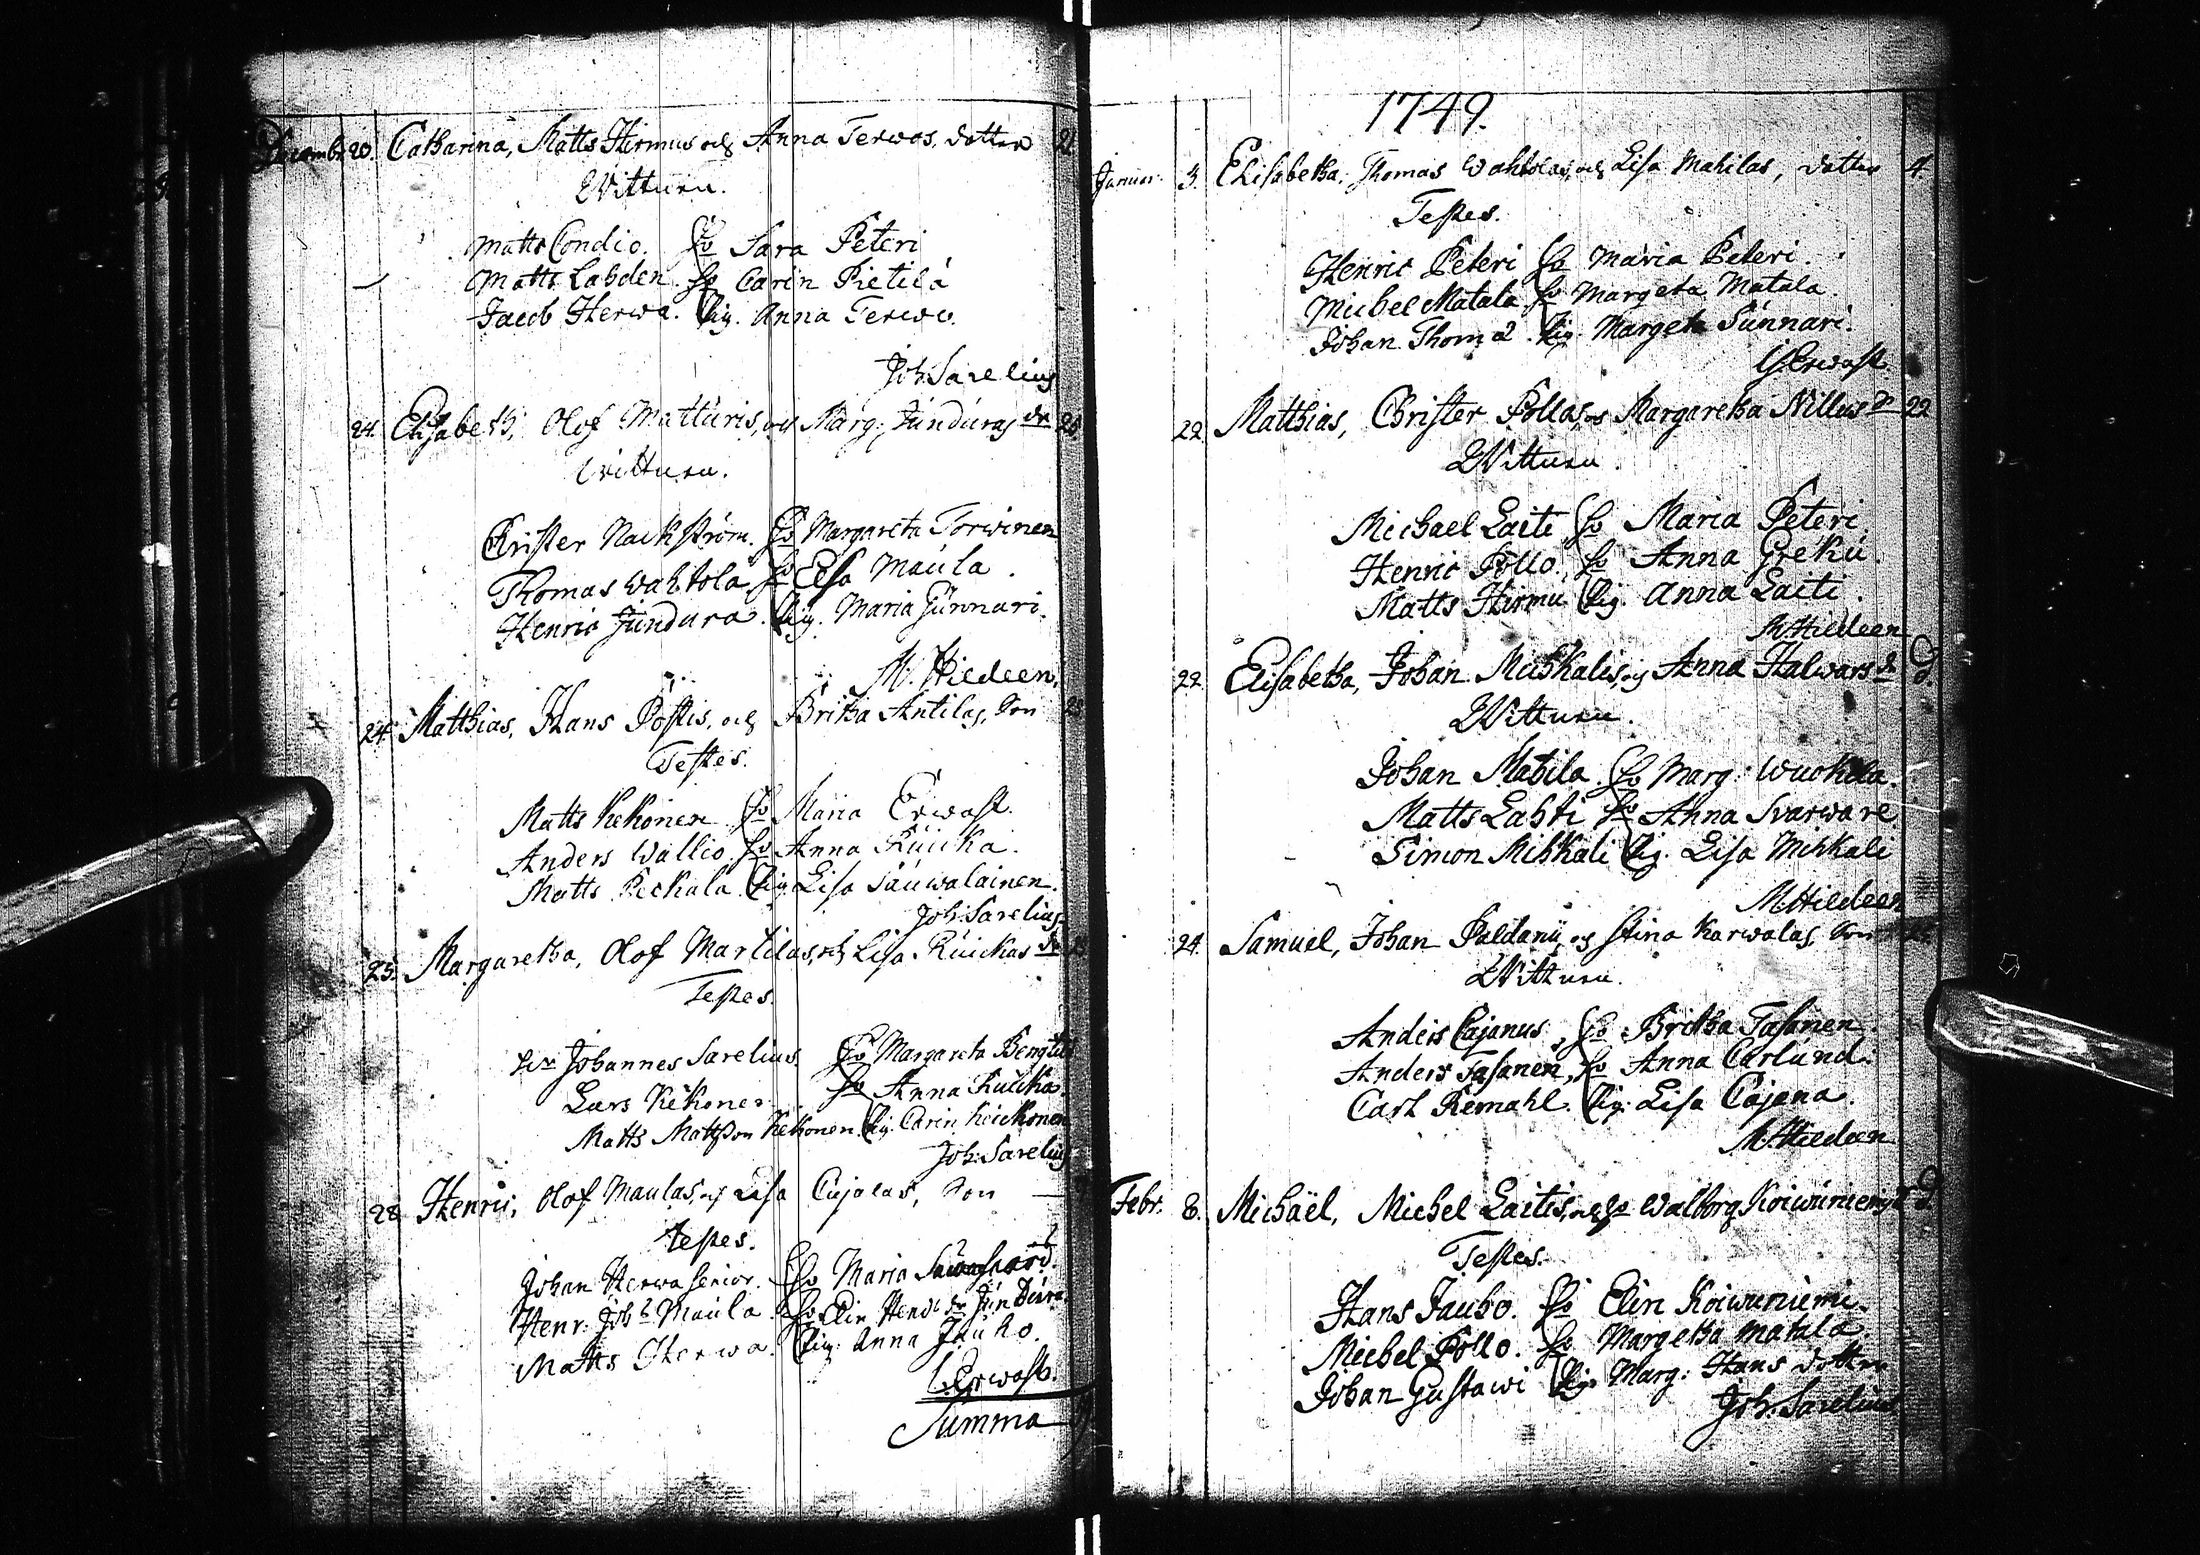 Decembr 20. Catharina, Matts Hirmus och Anna Terwos, dotter 21
Wittnen.
Matts Condio. Ho Sara Peteri
Matts Lahden. Ho Carin Pietilä
Jacob Herwa. Pig. Anna Terwo.
Joh: Sarelius
24. Elisabeth, Olof Matturis, och Marg: Jundúras dr
Wittnen.
Christer Nackström. Ho Margareta Torwinen
Thomas Wahtola Ho Lisa Maúla.
Henric Jundura. Pig. Maria
M. Hiedeen.
24. Matthias, Hans Postis, och Britha Antilas, Son 25
Testes.
Matts Kekonen Ho Maria Erwast.
Anders Wallio. Ho Anna Kuicka.
Matts Peckala. Pig. Lisa Sauwalainen.
Joh: Sarelius
25. Margaretha, Olof Martilas, och Lisa Kuickas dr
Testes.
Hr Johannes Sarelius. Ho Margareta
Lars Kekonen Ho Anna Kuicka.
Matts Mattsson Kekonen. Pig. Carin Keickonen
Joh: Sarelius
28. Henric, Olof Maulas, och Lisa Cajalas, Son
Testes.
Johan Herwa senior. Ho Maria
Henr: Joh: Maúla. Ho Elin Henr: dr Júndúra.
Matts Herwa. Pig. Anna Jauho.
Erwast.
Summa
1749.
Januar. 3. Elisabetha, Thomas Wahtolas, och Lisa Mahilas, dotter 4.
Testes.
Henric Peteri Ho Maria Peteri.
Michel Matala Ho Margeta Matala.
Johan Thomæ. Pig. Margeta Súnnari.
Erwast.
22. Matthias, Christer Pollas, och Margaretha Nillus 22
Wittnen.
Michael Laiti Ho Maria Peteri.
Henric Pollo. Ho Anna Grekú.
Matts Hirmu Pig. Anna Laiti.
M. Hiedeen
22. Elisabetha, Johan Mihkalis, och Anna Halwars dr
Wittnen.
Johan Mahila Ho Marg: Wuokila.
Matts Lahti Ho Anna Svarware
Simon Mihkali Pig. Lisa Mihkali
M. Hiedeen
24. Samuel, Johan Paldanii, och Stina Karwalas, Son
Wittnen.
Anders Cajanus, Ho Britha Tasanen.
Anders Tasanen, Ho Anna Carlúnd.
Carl Remahl. Pig. Lisa Cajana.
M. Hiedeen
Febr. 8. Michaël, Michel Laitis, och Walborg Koiwuniemis
Testes.
Hans Jauho. Ho Elin Koiwuniemi.
Michel Pollo. Ho Margetha Matala.
Johan Gustawi Pig. Marg: Hans dotter
Joh: Sarelius